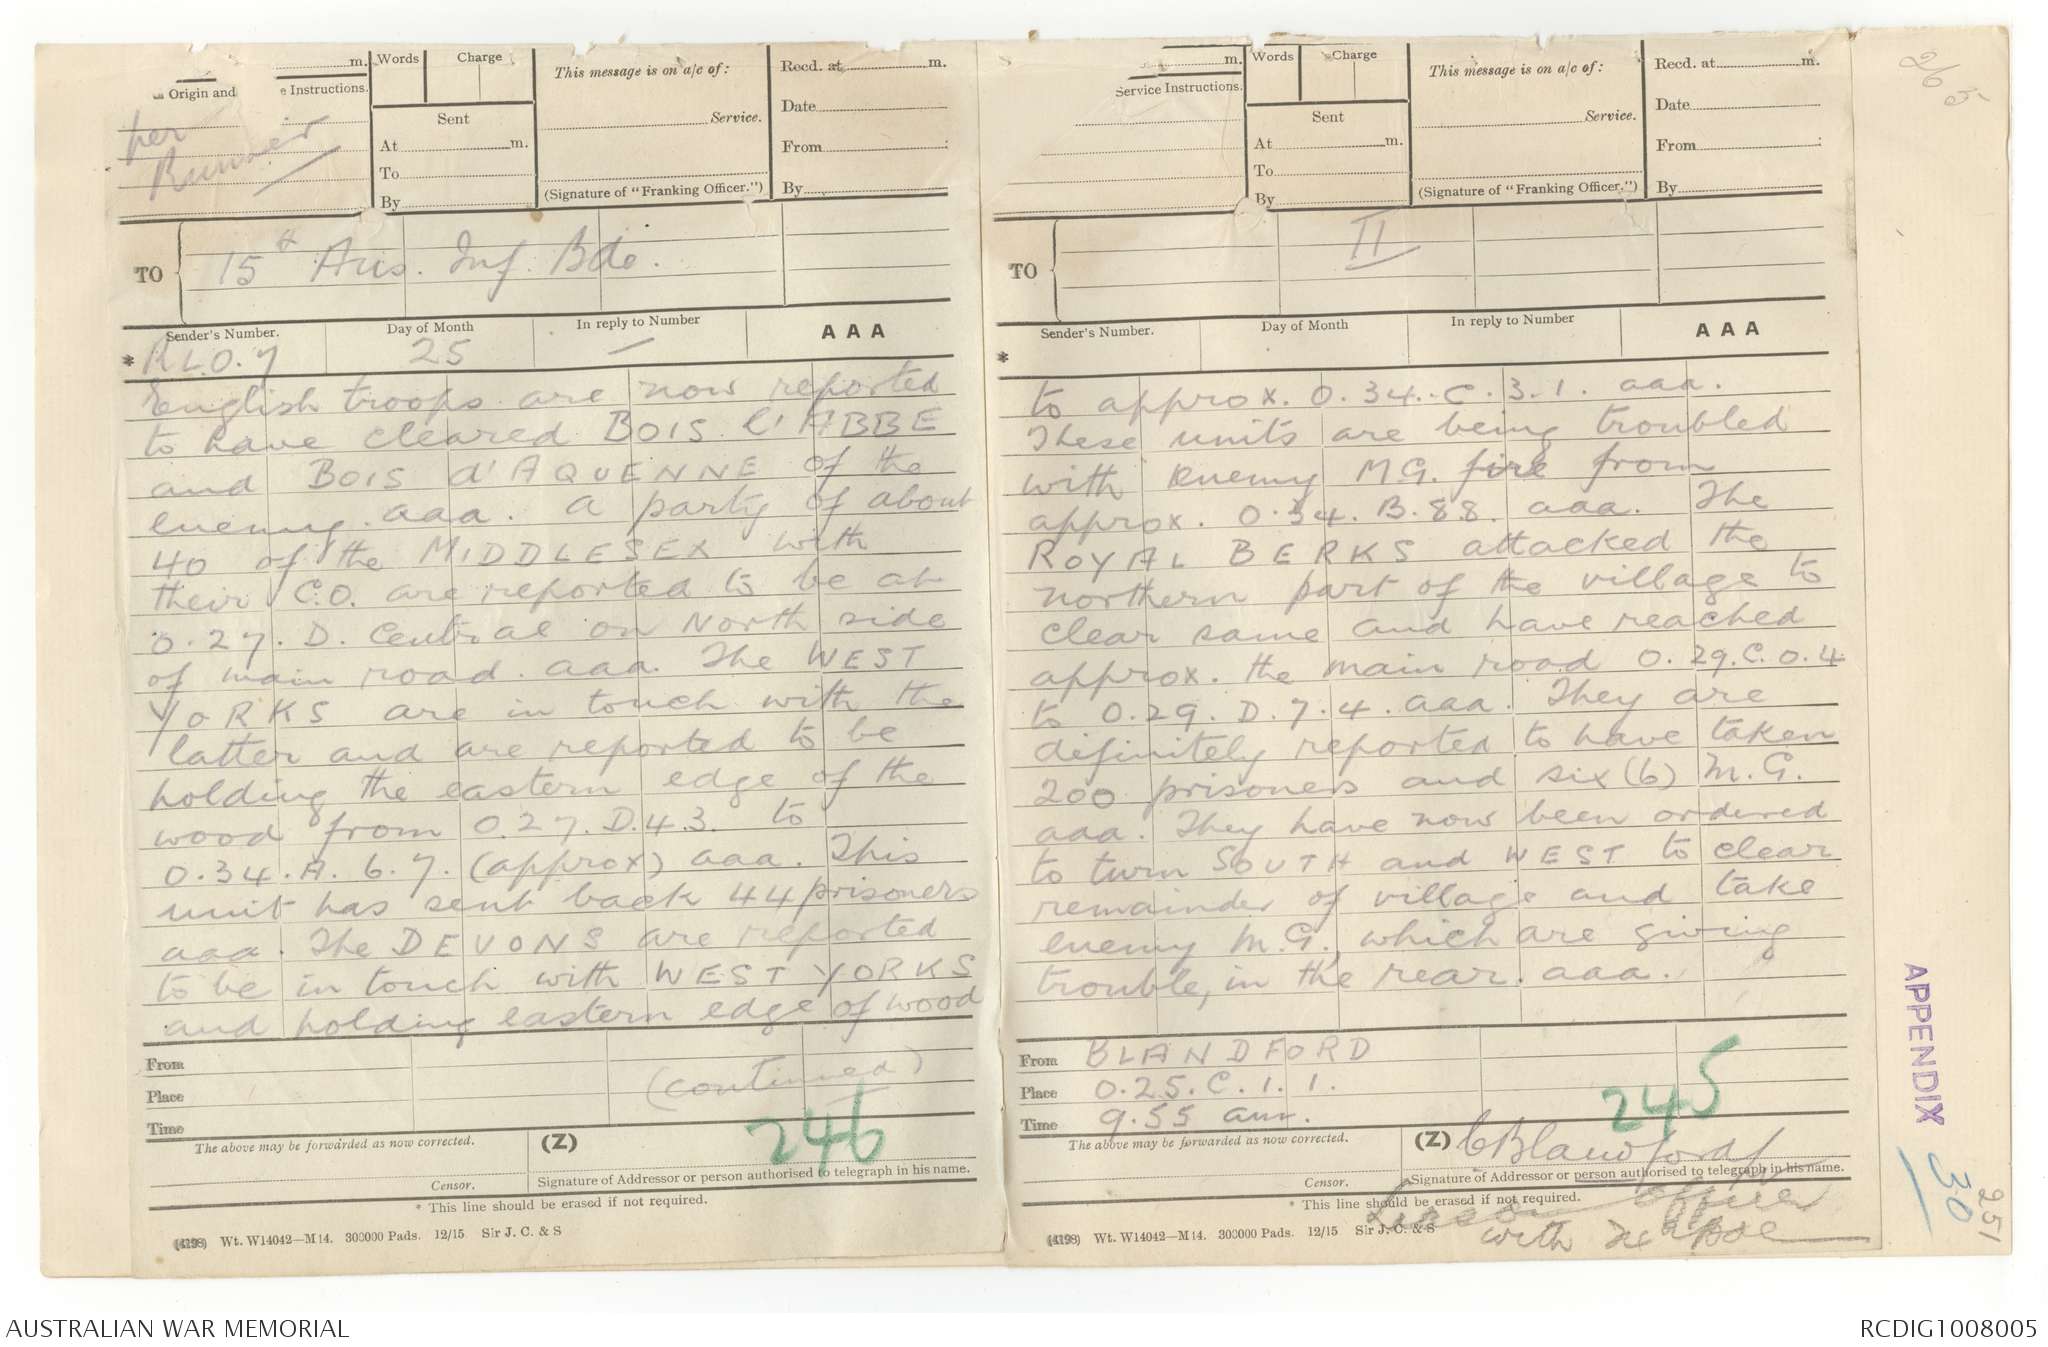 m.
Origin and
e Instructions.
per
Runner
Words
Charge
Sent
At m.
To
By
This message is on a/c of:
Service.
(Signature of "Franking Officer.")
Recd. at m.
Date
From
By
TO
15th Aus. Inf. Bde.
Sender's Number.
Day of Month
In reply to Number
AAA
* RLO.7
25
English troops are now reported
to have cleared BOIS l'ABBE
and BOIS d'AQUENNE of the
enemy. aaa. A party of about
40 of the MIDDLESEX with
their C.O. are reported to be at
O.27.D. Central on North side
of main road. aaa. The WEST
YORKS are in touch with the
latter and are reported to be
holding the eastern edge of the
wood from O.27.D.4.3. to
O.34.A.6.7. (approx) aaa. This
unit has sent back 44 prisoners
aaa. The DEVONS are reported
to be in touch with WEST YORKS
and holding eastern edge of wood
From
Place
Time
(continued)
246
The above may be forwarded as now corrected.
(Z)
Censor.
Signature of Addressor or person authorised to telegraph in his name.
* This line should be erased if not required.
(4198) Wt. W14042—M14. 300000 Pads. 12/15 Sir J. C. & S
m.
Service Instructions.
Words
Charge
Sent
At m.
To
By
This message is on a/c of:
Service.
(Signature of "Franking Officer.")
Recd. at m.
Date
From
By
TO
II
Sender's Number.
Day of Month
In reply to Number
AAA
*
to approx. O.34.C.3.1. aaa.
These units are being troubled
with enemy MG. fire from
approx. O.34.B.88. aaa. The
ROYAL BERKS attacked the
northern part of the village to
clear same and have reached
approx. the main road O.29.C.0.4
to O.29.D.7.4. aaa. They are
definitely reported to have taken
200 prisoners and six (6) M.G.
aaa. They have now been ordered
to turn SOUTH and WEST to clear
remainder of village and take
enemy M.G., which are giving
trouble, in the rear. aaa.
From BLANDFORD
Place O.25.C.1.1.
Time 9.55 am.
245
The above may be forwarded as now corrected.
(Z) CBlandford
Censor.
Signature of Addressor or person authorised to telegraph in his name.
* This line should be erased if not required.
Liaison Officer
with Bde
(4198) Wt. W14042—M14. 300000 Pads. 12/15 Sir J. C. & S
APPENDIX
30
251
AUSTRALIAN WAR MEMORIAL
RCDIG1008005